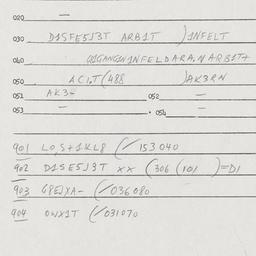 020 —
030 D1SFE5J3T ARB1T )1NFELT
040 Q1GANG1N1NFELDARA,NARB1T+
050 ACI,T(488 )AK3RN
051 AK3- 052 —
053 — 054 —
901 LO,S+1KL8 (/153040
902 D1SE5J3T XX (306 (10X )=D1
903 G8EJXA- (/036080
904 OWX1T (/031070